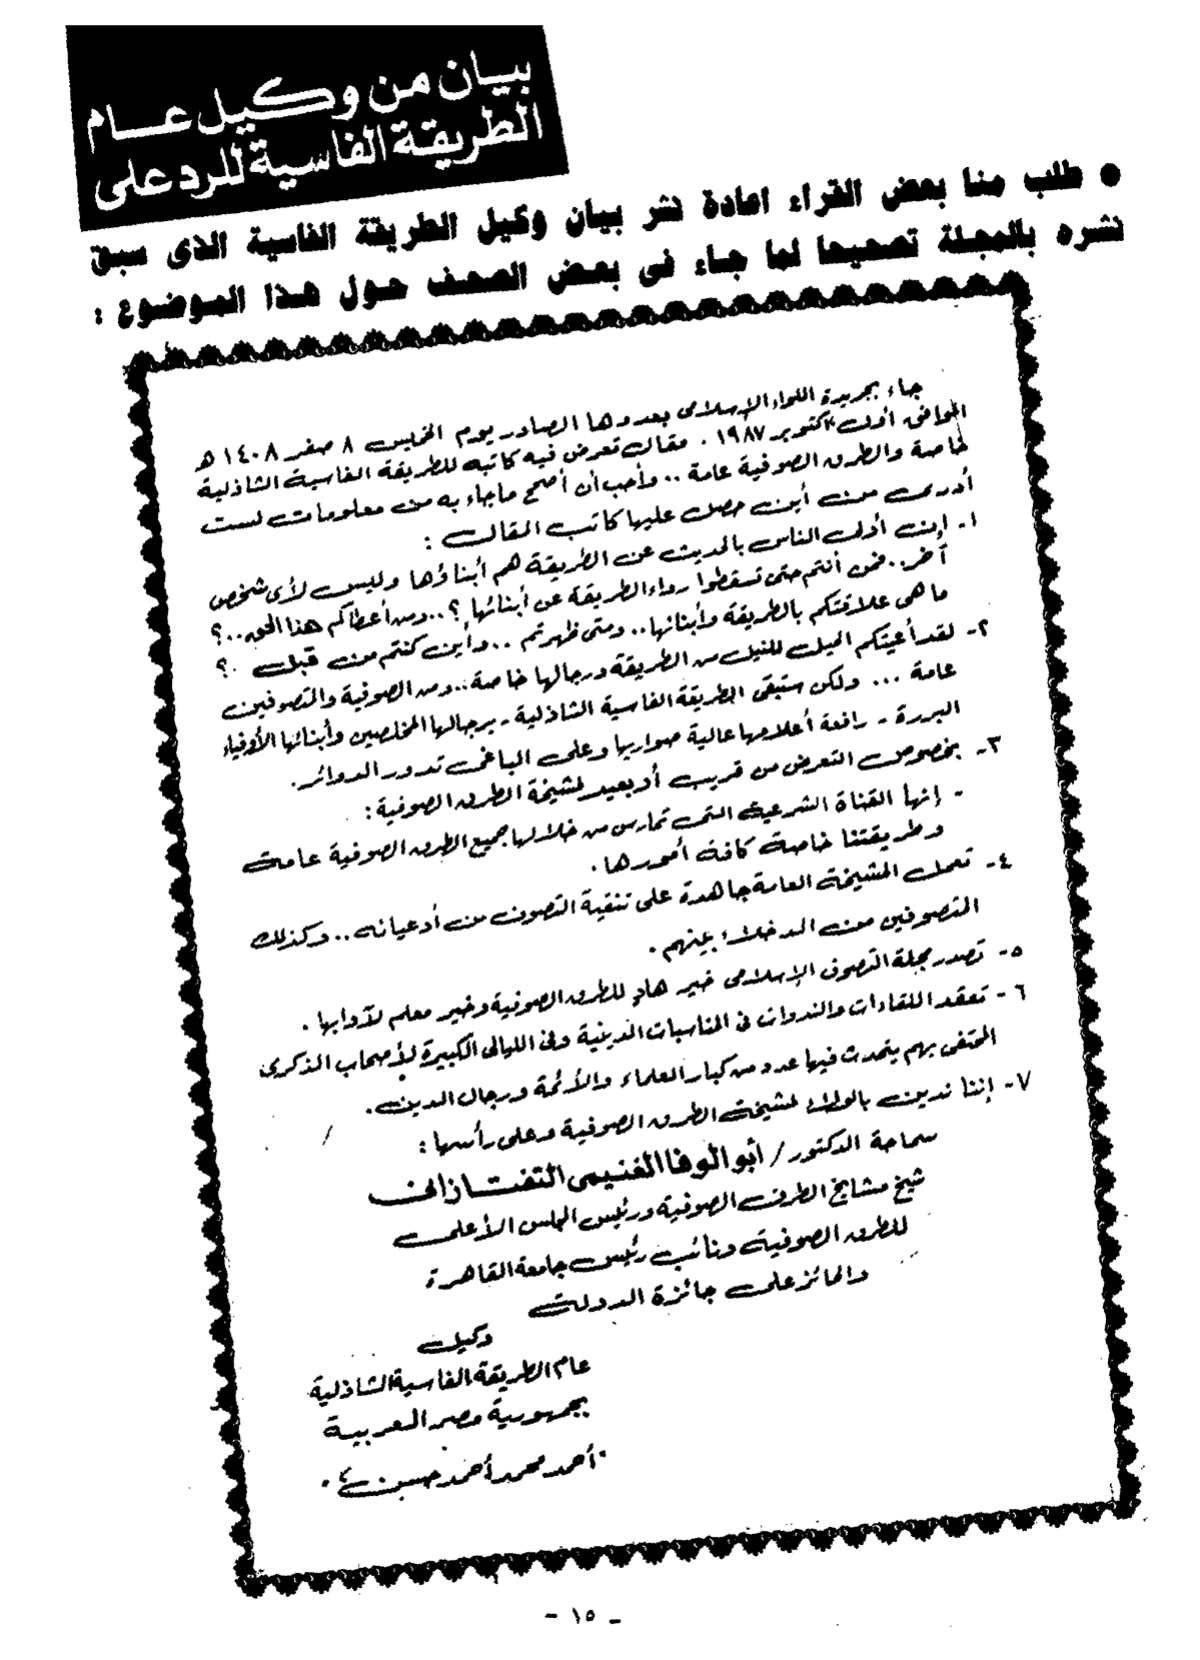 بيان من وكيل عام
الطريقة الفاسية للرد على
● طلب منا بعض القراء اعادة نشر بيان وكيل الطريقة الفاسية الذى سبق
نشره بالمجلة تصحيحا لما جاء فى بعض الصحف حول هذا الموضوع :
جاء بجريدة اللواء الإسلامى بعددها الصادر يوم الخميس ٨ صفر ١٤٠٨ هـ
الموافق أول أكتوبر ١٩٨٧ . مقال تعرض فيه كاتبه للطريقة الفاسية الشاذلية
خاصة والطرق الصوفية عامة .. وأحب أن أصحح ماجاء به من معلومات لست
أدرى من أين حصل عليها كاتب المقال :
١- إن أولى الناس بالحديث عن الطريقة هم أبناؤها وليس لأى شخص
آخر .. فمن أنتم حتى تسقطوا رداء الطريقة عن أبنائها ؟ .. ومن أعطاكم هذا الحق .. ؟
ما هى علاقتكم بالطريقة وأبنائها .. ومتى ظهرتم .. وأين كنتم من قبل . ؟
٢- لقد أعيتكم الحيل للنيل من الطريقة ورجالها خاصة .. ومن الصوفية والمتصوفين
عامة ... ولكن ستبقى الطريقة الفاسية الشاذلية - برجالها المخلصين وأبنائها الأوفياء
البررة - رافعة أعلامها عالية صواريها وعلى الباغى تدور الدوائر .
٣- بخصوص التعرض من قريب أو بعيد لمشيخة الطرق الصوفية :
- إنها القناة الشرعية التى تمارس من خلالها جميع الطرق الصوفية عامة
وطريقتنا خاصة كافة أمورها .
٤- تعمل المشيخة العامة جاهدة على تنقية التصوف من أدعيائه .. وكذلك
المتصوفين من الدخلاء بينهم .
٥- تصدر مجلة التصوف الإسلامى خير هادٍ للطرق الصوفية وخير معلم لآدابها .
٦- تعقد اللقاءات والندوات فى المناسبات الدينية وفى الليالى الكبيرة لأصحاب الذكرى
المحتفى بهم يتحدث فيها عدد من كبار العلماء والأئمة ورجال الدين .
٧- إننا ندين بالولاء لمشيخة الطرق الصوفية وعلى رأسها :
سماحة الدكتور / أبو الوفا الغنيمى التفتازانى
شيخ مشايخ الطرق الصوفية ورئيس المجلس الأعلى
للطرق الصوفية ونائب رئيس جامعة القاهرة
والحائز على جائزة الدولة
وكيل
عام الطريقة الفاسية الشاذلية
بجمهورية مصر العربية
"أحمد محمد أحمد حسن"
- ١٥ -